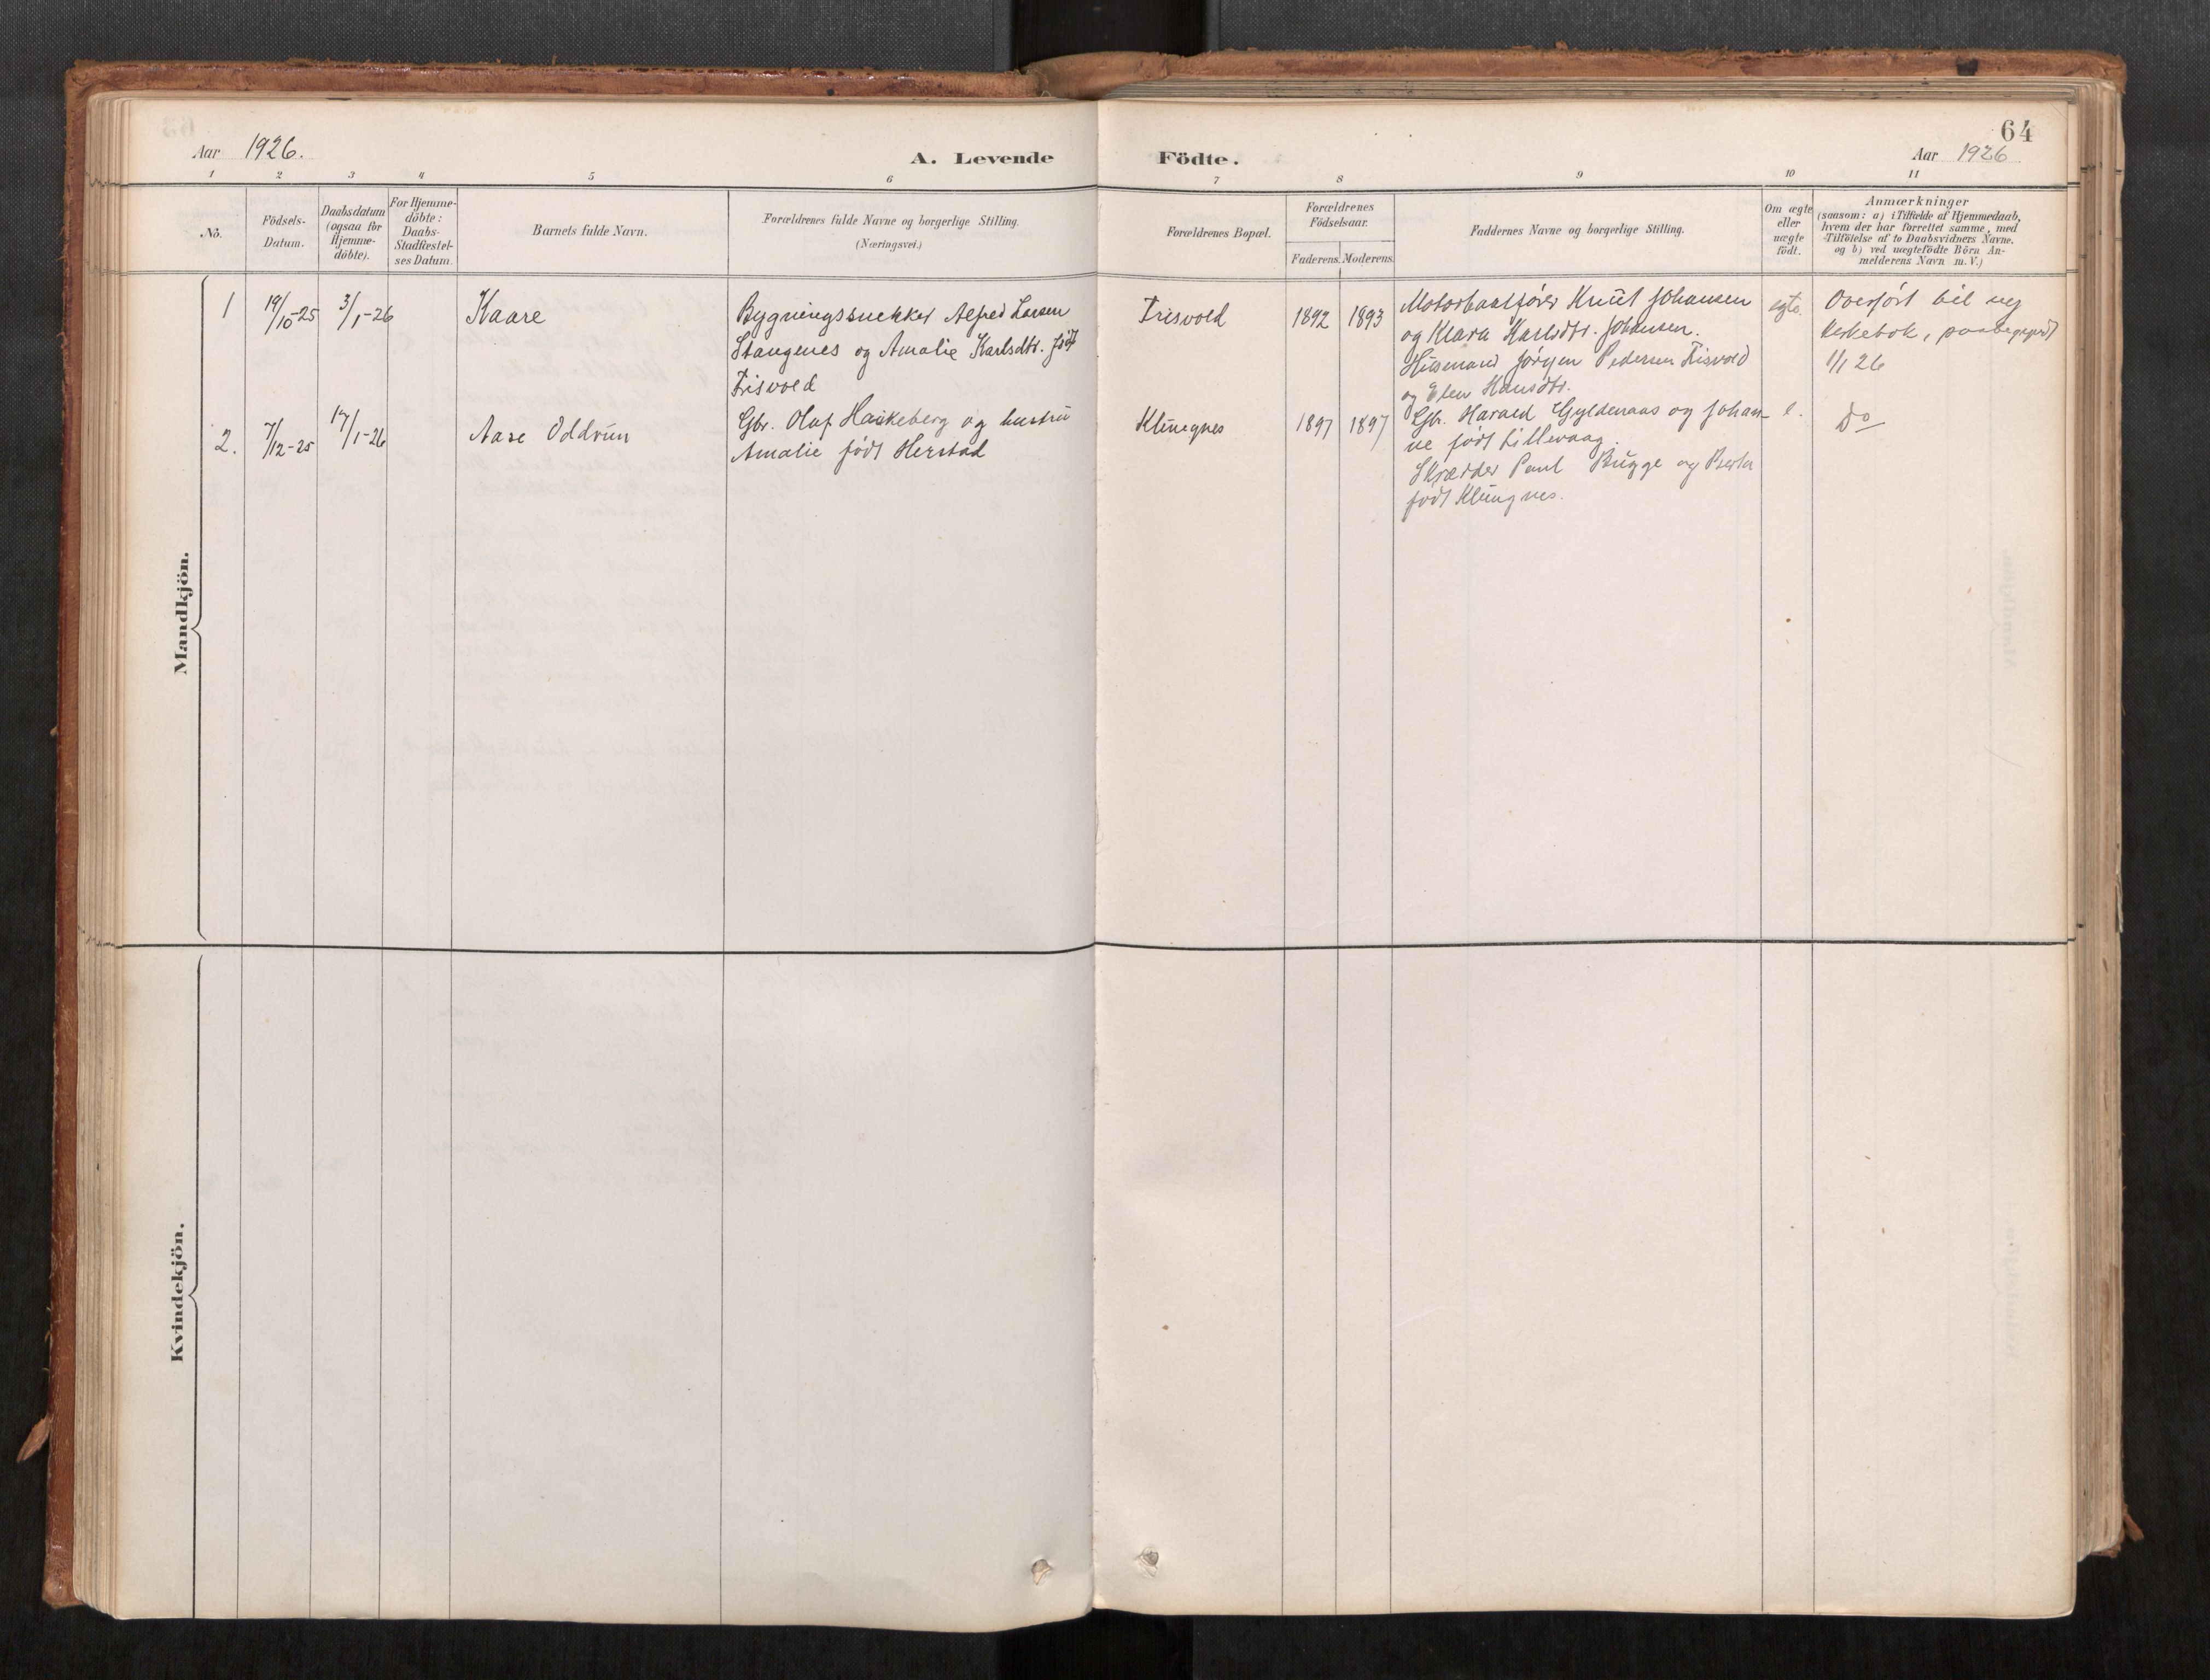 64
Aar 1926.
A. Levende Födte.
Aar 1926
1 2 3 4 5 6 7 8 9 10 11
No.
Födsels-
Datum.
Daabsdatum
(ogsaa for
Hjemme-
döbte).
For Hjemme-
döbte:
Daabs-
Stadfæstel-
ses Datum.
Barnets fulde Navn.
Forældrenes fulde Navne og borgerlige Stilling.
(Næringsvei.)
Forældrenes Bopæl.
Forældrenes
Födselsaar.
Faderens. Moderens.
Faddernes Navne og borgerlige Stilling.
Om ægte
eller
uægte
födt.
Anmærkninger
(saasom: a) i Tilfælde af Hjemmedaab,
hvem der har forrettet samme, med
Tilföielse af to Daabsvidners Navne.
og b) ved uægtefödte Börn An-
melderens Navn m. V.)
Mandkjön.
1
19/10-25
3/1-26
Kaare
Bygningssnekker Alfred Larsen
Stangenes og Amalie Karlsdtr. født
Frisvold
Frisvold
1892
1893
Motorbaatfører Knut Johansen
og Klara Karlsdtr. Johansen.
Husmand Jørgen Pedersen Frisvold
og Elen Hansdtr.
egte.
Overført til ny
kirkebok, paabegyndt
1/1 26
2.
7/12-25
17/1-26
Aase Oddrun
Gbr. Olaf Haskeberg og hustru
Amalie født Herstad
Klungnes
1897
1897
Gbr. Harald Gyldenaas og Johan-
ne født Lillevaag.
Skrædder Paul Bugge og Berta
født Klungnes.
e.
Do
Kvindekjön.